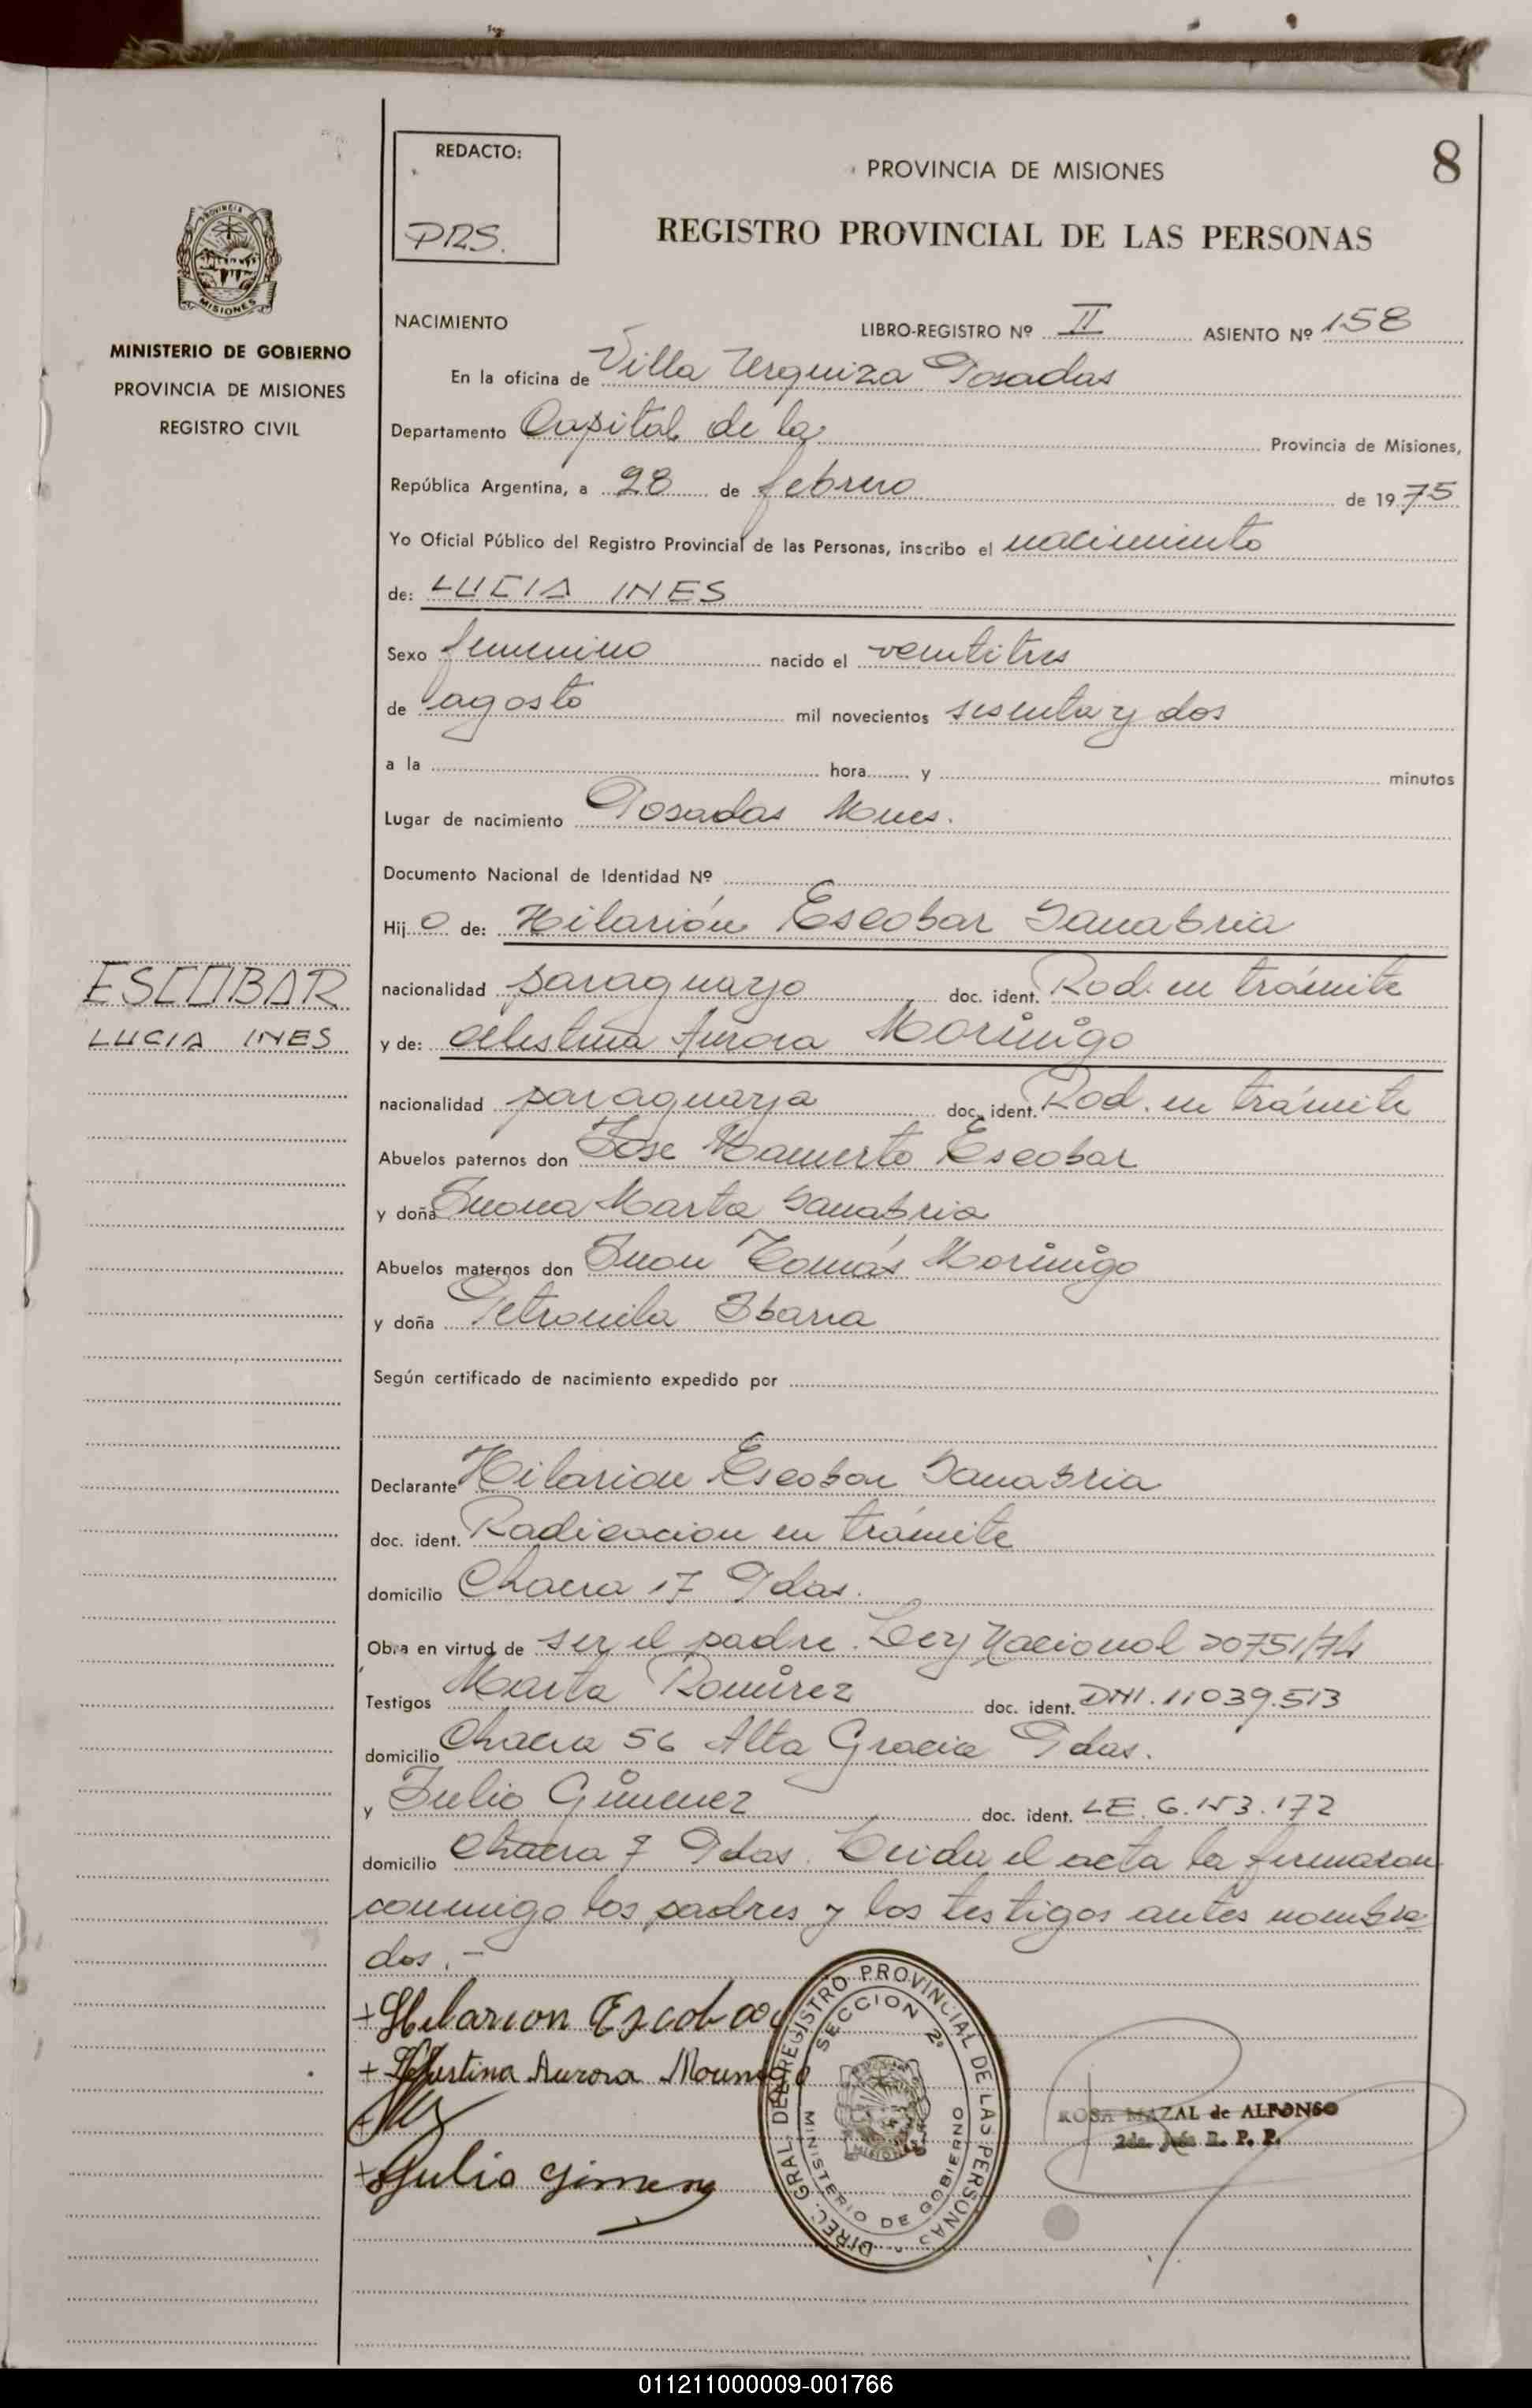 REDACTO:
PRS.
PROVINCIA DE MISIONES
8
REGISTRO PROVINCIAL DE LAS PERSONAS
MISIONES
MINISTERIO DE GOBIERNO
PROVINCIA DE MISIONES
REGISTRO CIVIL
NACIMIENTO LIBRO-REGISTRO Nº II ASIENTO Nº 158
En la oficina de Villa Urquiza Posadas
Departamento Capital de la Provincia de Misiones,
República Argentina, a 28 de febrero de 1975
Yo Oficial Público del Registro Provincial de las Personas, inscribo el nacimiento
de: LUCIA INES
Sexo femenino nacido el veintitres
de agosto mil novecientos sesenta y dos
a la hora y minutos
Lugar de nacimiento Posadas Mnes.
Documento Nacional de Identidad Nº
Hij o de: Hilarión Escobar Sanabria
ESCOBAR
LUCIA INES
nacionalidad paraguayo doc. ident. Rad. en trámite
y de: Celestina Aurora Morinigo
nacionalidad paraguaya doc. ident. Rad. en trámite
Abuelos paternos don Jose Mamerto Escobar
y doña Juana Marta Sanabria
Abuelos maternos don Juan Tomás Morinigo
y doña Petronila Ibarra
Según certificado de nacimiento expedido por
Declarante Hilarion Escobar Sanabria
doc. ident. Radicacion en trámite
domicilio Chacra 17 Pdas.
Obra en virtud de ser el padre. Ley Nacional 20751/74
Testigos Marta Ramirez doc. ident. DNI. 11039.513
domicilio Chacra 56 Alta Gracia Pdas.
y Julio Gimenez doc. ident. LE. 6.153.172
domicilio Chacra 7 Pdas. Leida el acta la firmaron
conmigo los padres y los testigos antes nombra
dos.-
+ Hilarion Escobar
+ Celestina Aurora Morinigo
+ Julio Gimenez
DIREC. GRAL. DEL REGISTRO PROVINCIAL DE LAS PERSONAS
SECCION 2ª
MINISTERIO DE GOBIERNO
MISIONES
ROSA MAZAL de ALFONSO
2da. Jefe R. P. P.
011211000009-001766